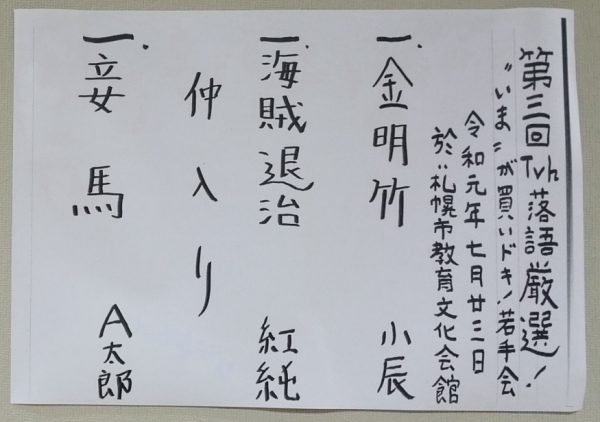 第三回Tvh落語厳選!
"いま"が買いドキ!若手会
令和元年七月廿三日
於:札幌市教育文化会館
一.金明竹 小辰
一.海賊退治 紅純
仲入り
一.妾馬 A太郎